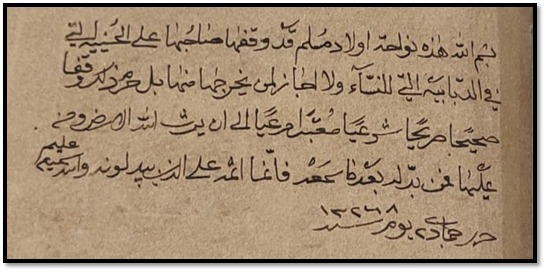 بسم الله هذه نواحة اولاد مسلم قد وقفها صاحبها على الحسينية التي
في الدبابية التي للنسآء ولا اجاز لمن يخرجها منها بل حرم ذلك وقفا
صحيحا صريحا شرعيا معتبرا مرعيا الى ان يرث الله الارض ومن
عليها فمن بدله بعد ما سمعه فانما اثمه على الذين يبدلونه والله سميع عليم
حرر جمادي يوم سنه ١٣٢٦